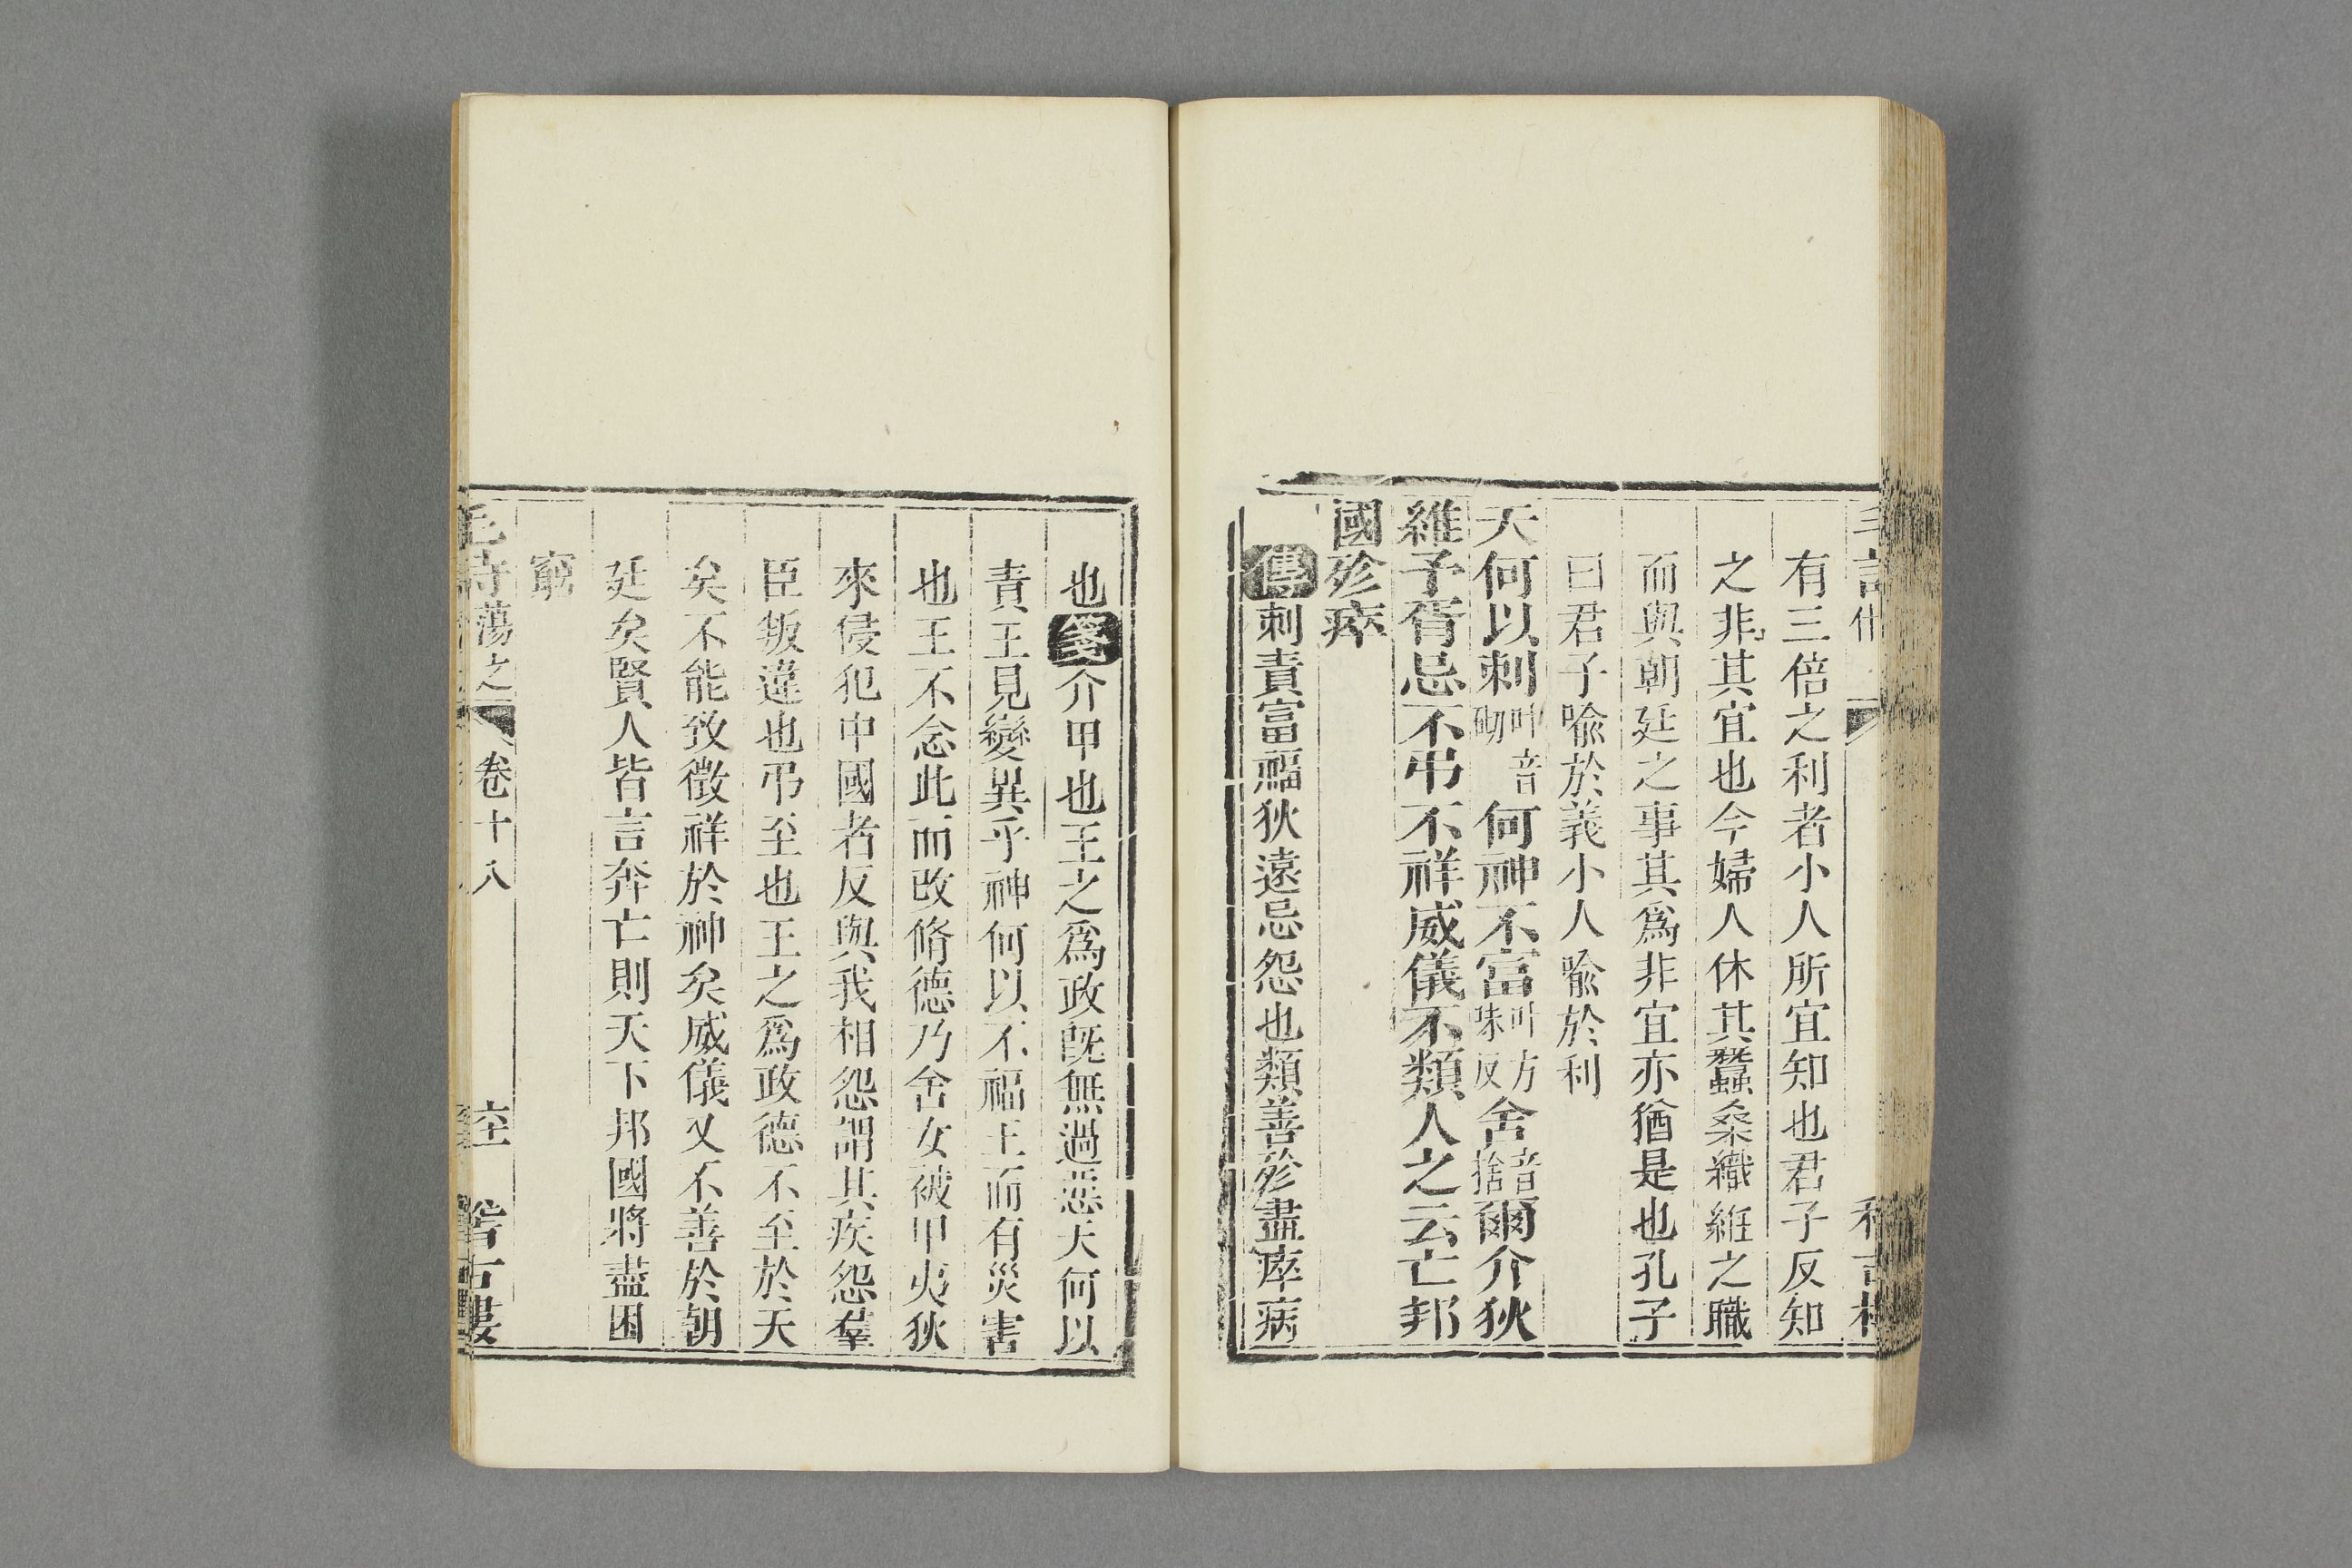 有三倍之利者小人所宜知也君子反知
之非其宜也今婦人休其蠶桑織絍之職
而與朝廷之事其爲非宜亦猶是也孔子
曰君子喩於義小人喩於利
天何以刺叶音砌何神不富叶方味反舍音捨爾介狄
維予胥忌不弔不祥威儀不類人之云亡邦
國殄瘁
傳刺責富福狄遠忌怨也類善殄盡瘁病
也箋介甲也王之爲政旣無過惡天何以
責王見變異乎神何以不福王而有災害
也王不念此而改脩德乃舍女被甲夷狄
來侵犯中國者反與我相怨謂其疾怨羣
臣叛違也弔至也王之爲政德不至於天
矣不能致徵祥於神矣威儀又不善於朝
廷矣賢人皆言奔亡則天下邦國將盡困
窮
毛詩蕩之 卷十八 稽古樓